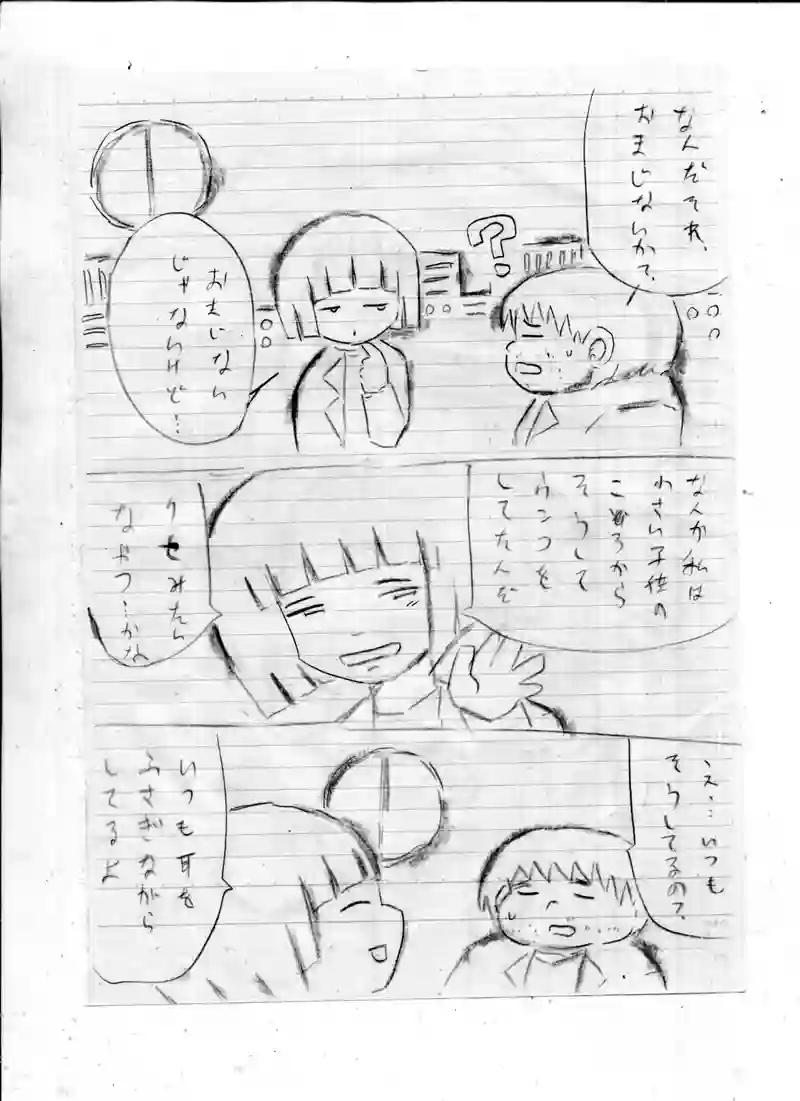 なんだそれ、
おまじないかて、
?
おまじない
じゃないけど…
なんか私は
小さい子供の
ころから
そうして
ウンコを
してたんだ
クセみたい
なやつ…かな
え…いつも
そうしてるの?
いつも耳を
ふさぎながら
してるよ